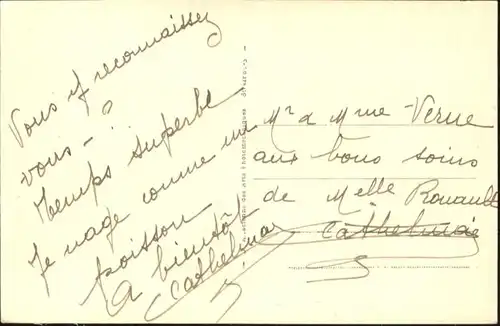 Vous y reconnaissez
vous - ?
Temps superbe
Je nage comme un
poisson
A bientôt
Cathelina
Mr & Mme Verne
aux bons soins
de Melle Rouault